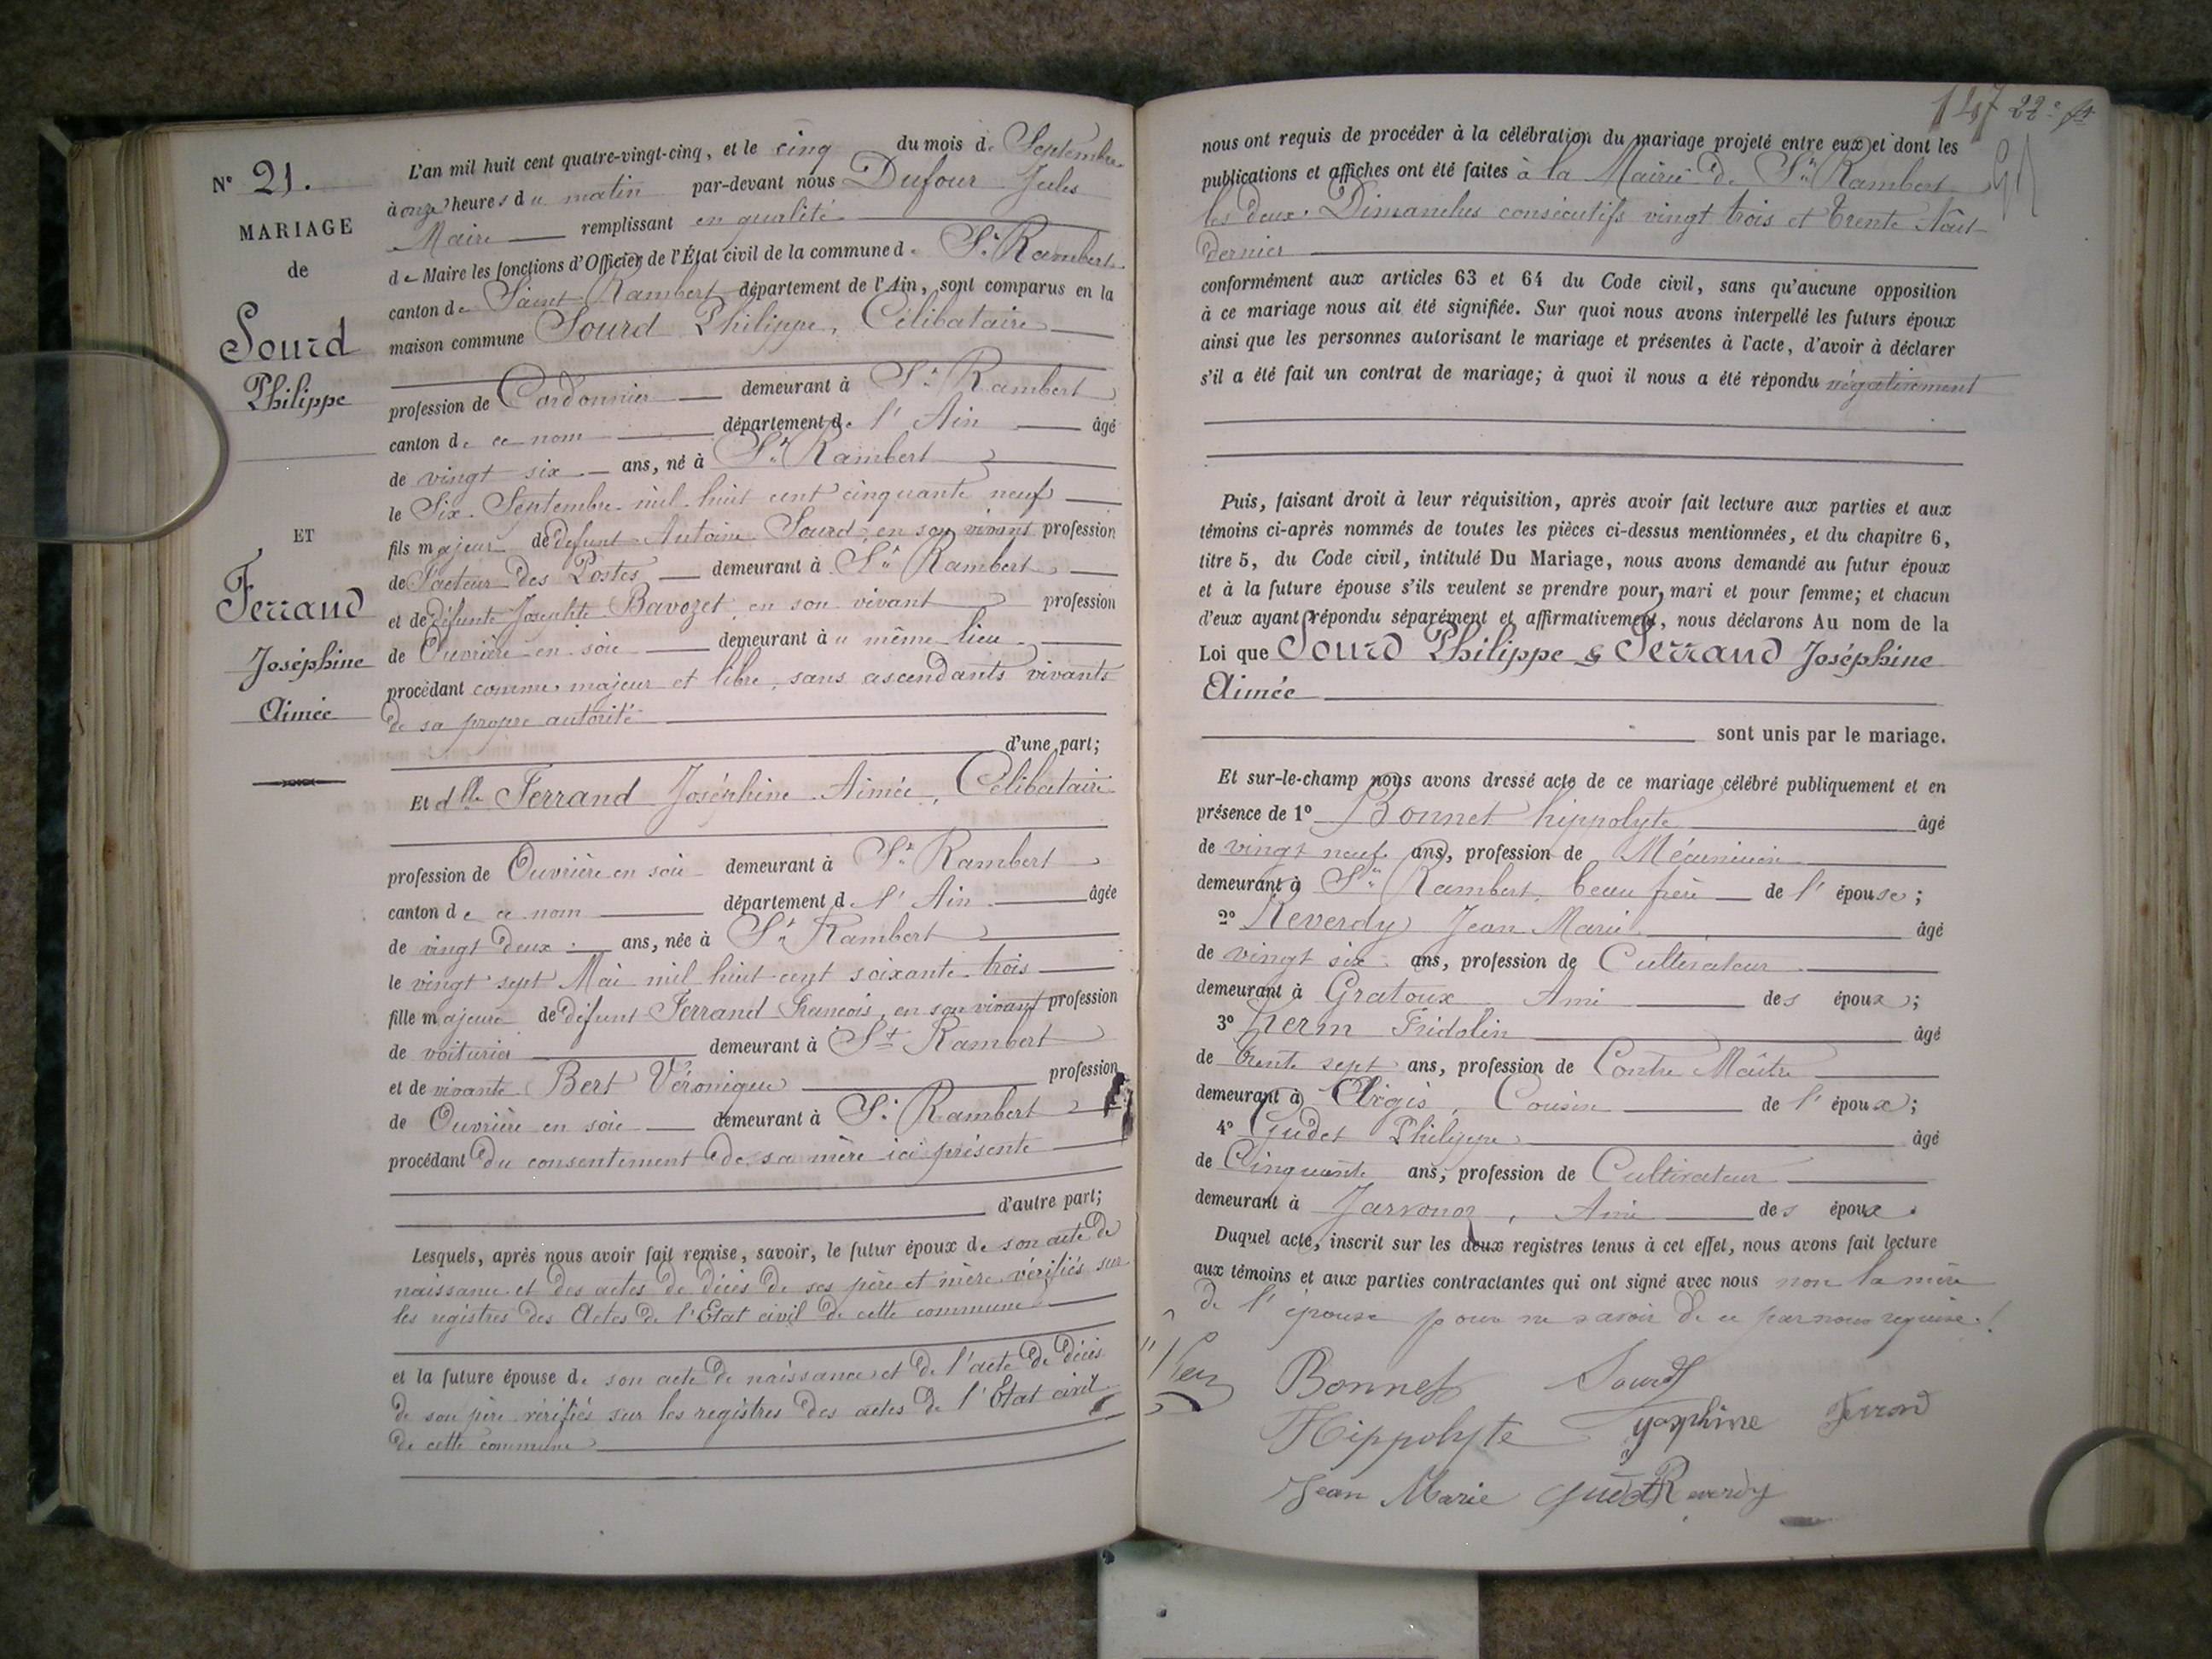 N° 21.
MARIAGE
de
Sourd
Philippe
ET
Ferrand
Joséphine
Aimée
L'an mil huit cent quatre-vingt-cinq, et le cinq du mois de Septembre
à onze heures du matin par-devant nous Dufour Jules
Maire remplissant en qualité
de Maire les fonctions d'Officier de l'État civil de la commune de St Rambert
canton de Saint Rambert département de l'Ain, sont comparus en la
maison commune Sourd Philippe, Célibataire
profession de Cordonnier demeurant à St Rambert
canton de ce nom département de l'Ain âgé
de vingt six ans, né à St Rambert
le Six Septembre mil huit cent cinquante neuf
fils majeur de défunt Antoine Sourd, en son vivant profession
de Facteur des Postes demeurant à St Rambert
et de défunte Josephte Bavozet en son vivant profession
de Ouvrière en soie demeurant à u même lieu
procédant comme majeur et libre, sans ascendants vivants
de sa propre autorité
d'une part;
Et dlle Ferrand Joséphine Aimée, Célibataire
profession de Ouvrière en soie demeurant à St Rambert
canton de ce nom département de l'Ain âgée
de vingt deux ans, née à St Rambert
le vingt sept Mai mil huit cent soixante trois
fille majeure de défunt Ferrand François, en son vivant profession
de voiturier demeurant à St Rambert
et de vivante Bert Véronique profession
de Ouvrière en soie demeurant à St Rambert
procédant du consentement de sa mère ici présente
d'autre part;
Lesquels, après nous avoir fait remise, savoir, le futur époux de son acte de
naissance et des actes de décès de ses père et mère vérifiés sur
les registres des Actes de l'Etat civil de cette commune
et la future épouse de son acte de naissance et de l'acte de décès
de son père vérifiés sur les registres des actes de l'Etat civil
de cette commune
147 22e
nous ont requis de procéder à la célébration du mariage projeté entre eux et dont les
publications et affiches ont été faites à la Mairie de St Rambert
les deux Dimanches consécutifs vingt trois et trente Août
dernier
conformément aux articles 63 et 64 du Code civil, sans qu'aucune opposition
à ce mariage nous ait été signifiée. Sur quoi nous avons interpellé les futurs époux
ainsi que les personnes autorisant le mariage et présentes à l'acte, d'avoir à déclarer
s'il a été fait un contrat de mariage; à quoi il nous a été répondu négativement
Puis, faisant droit à leur réquisition, après avoir fait lecture aux parties et aux
témoins ci-après nommés de toutes les pièces ci-dessus mentionnées, et du chapitre 6,
titre 5, du Code civil, intitulé Du Mariage, nous avons demandé au futur époux
et à la future épouse s'ils veulent se prendre pour mari et pour femme; et chacun
d'eux ayant répondu séparément et affirmativement, nous déclarons Au nom de la
Loi que Sourd Philippe & Ferrand Joséphine
Aimée
sont unis par le mariage.
Et sur-le-champ nous avons dressé acte de ce mariage célébré publiquement et en
présence de 1° Bonnet hippolyte âgé
de vingt neuf ans, profession de Mécanicien
demeurant à St Rambert, beau frère de l'épouse;
2° Reverdy Jean Marie âgé
de vingt six ans, profession de Cultivateur
demeurant à Gratoux Ami des époux;
3° Zerm Fridolin âgé
de trente sept ans, profession de Contre Maître
demeurant à Argis, Cousin de l'époux;
4° Gudet Philippe âgé
de Cinquante ans, profession de Cultivateur
demeurant à Javornoz, Ami des époux.
Duquel acte, inscrit sur les deux registres tenus à cet effet, nous avons fait lecture
aux témoins et aux parties contractantes qui ont signé avec nous non la mère
de l'épouse pour ne savoir de ce par nous requise.
Bonnet Sourd
Hippolyte Josphine Ferrand
Jean Marie Gudet Reverdy